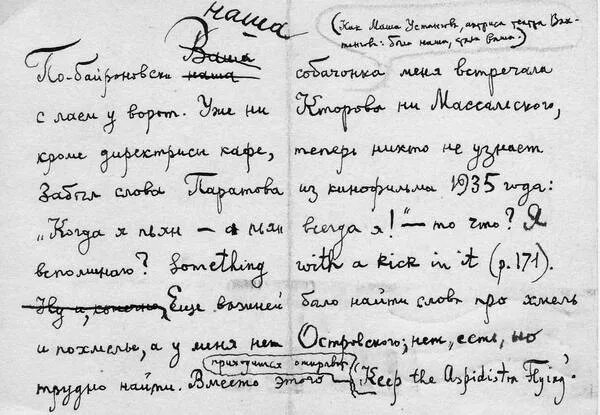 наша
(Как Маша Устинова, актриса театра Вах-
тангова: была наша, стала Ваша.)
По-байроновски Ваша наша собачонка меня встречала
с лаем у ворот. Уже ни Кторова ни Массальского,
кроме директрисы кафе, теперь никто не узнает
Забыл слова Паратова из кинофильма 1935 года:
„Когда я пьян — а пьян всегда я!" — то что? Я
вспоминаю? Something with a kick in it (p. 171).
Ну а, конечно, Еще важней было найти слова про хмель
и похмелье, а у меня нет Островского; нет, есть, но
приходится отправлять
трудно найти. Вместо этого (Keep the Aspidistra Flying.